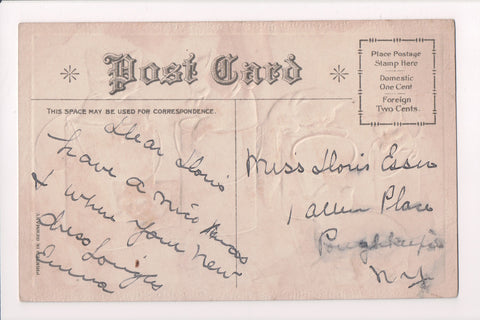 Post Card
Place Postage
Stamp Here
Domestic
One Cent
Foreign
Two Cents
THIS SPACE MAY BE USED FOR CORRESPONDENCE.
Dear Doris
have a nice Xmas
& when your new
dress tonight
Emma
Miss Doris Essex
1 Allen Place
Poughkeepsie
N.Y.
PRINTED IN GERMANY